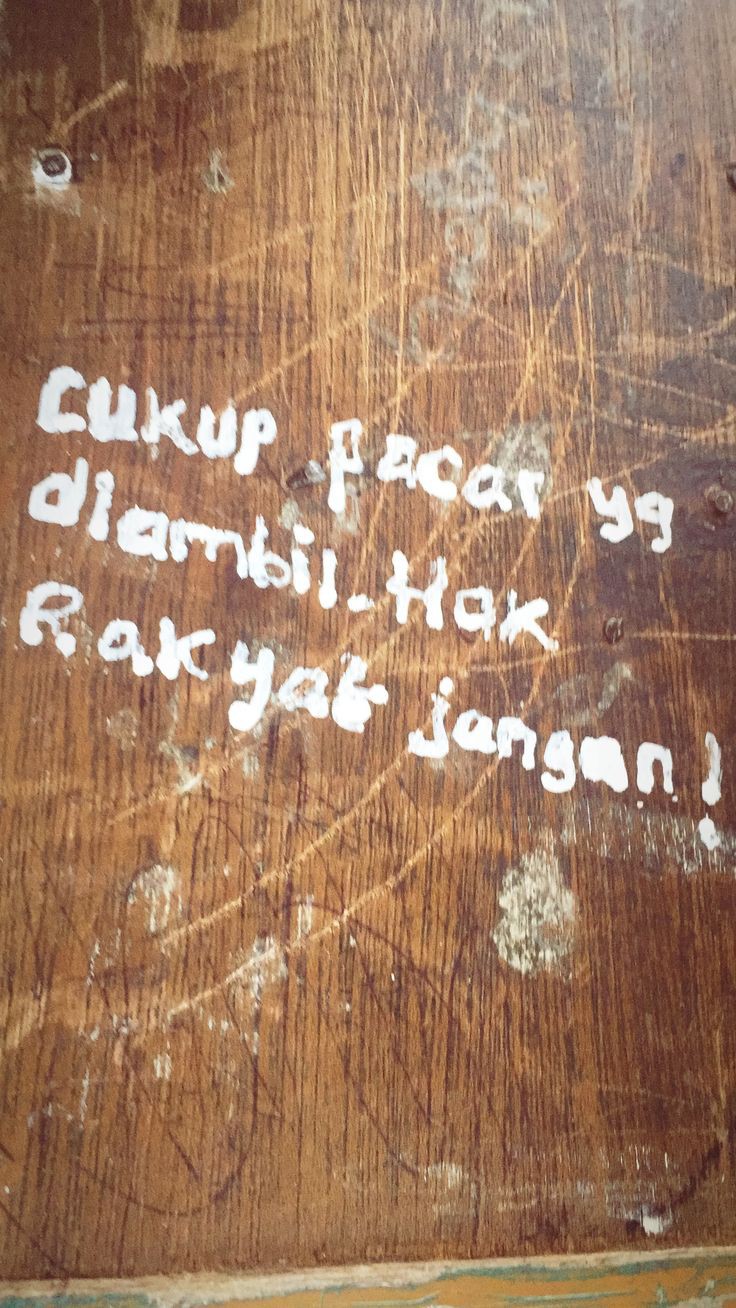 Cukup pacar yg
diambil. Hak
Rakyat jangan!